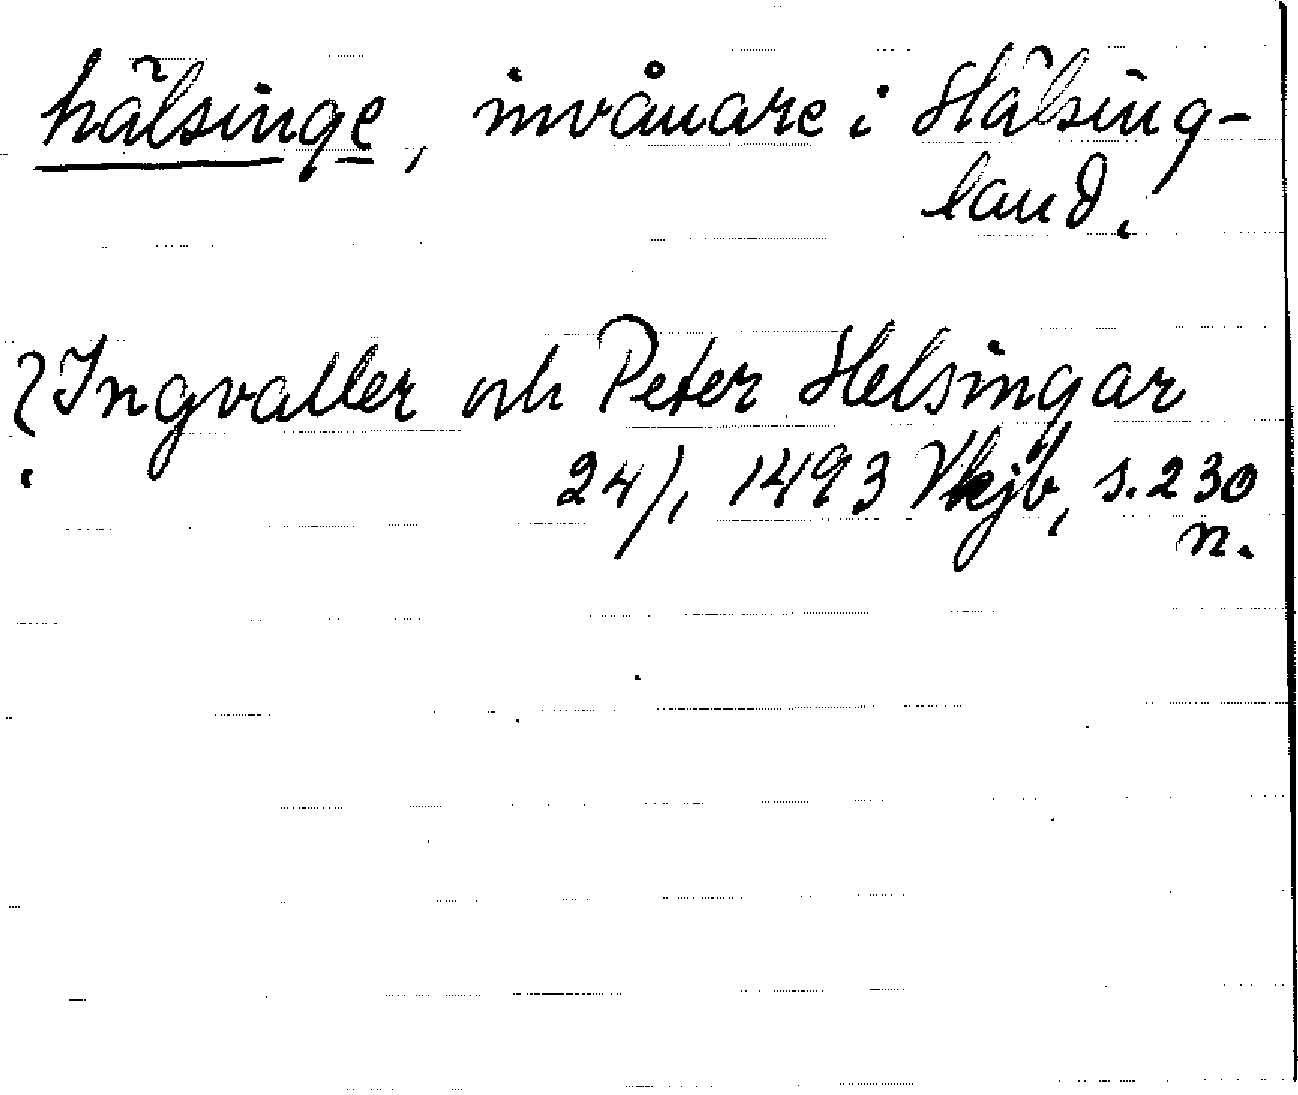 hälsinge, invånare i Hälsing-
land.
? Ingvaller och Peter Helsingar
24/1 1493 Vkjb, s. 230
n.